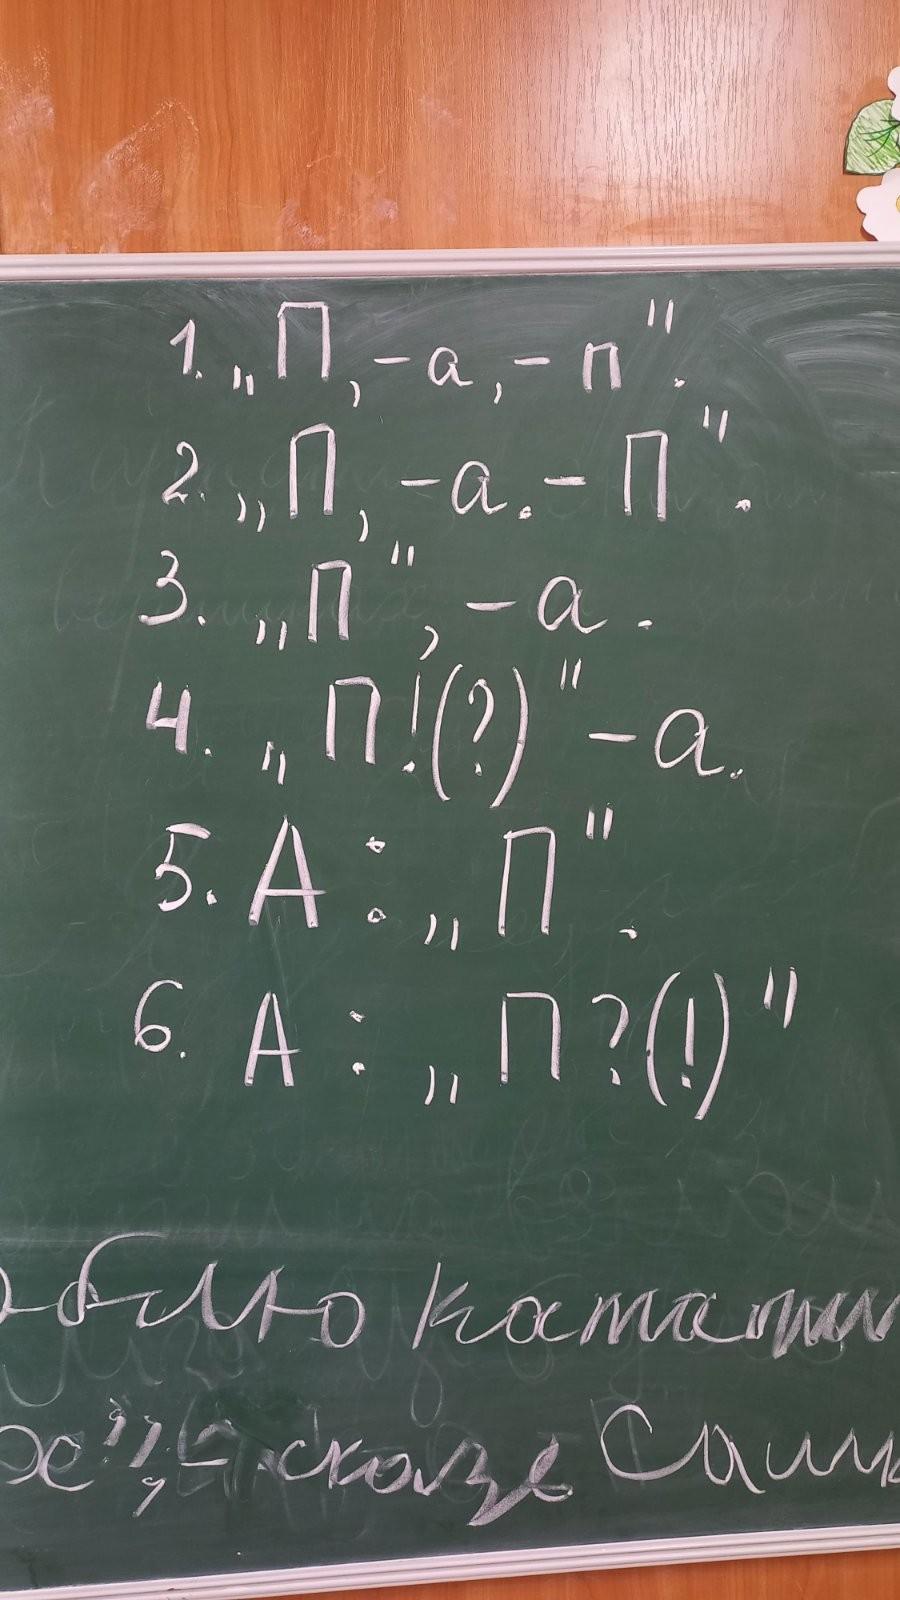 1. „П, – а, – п".
2. „П, – а. – П".
3. „П", – а.
4. „П!(?)" – а.
5. А: „П".
6. А: „П?(!)"
катат
", – сказе Саш